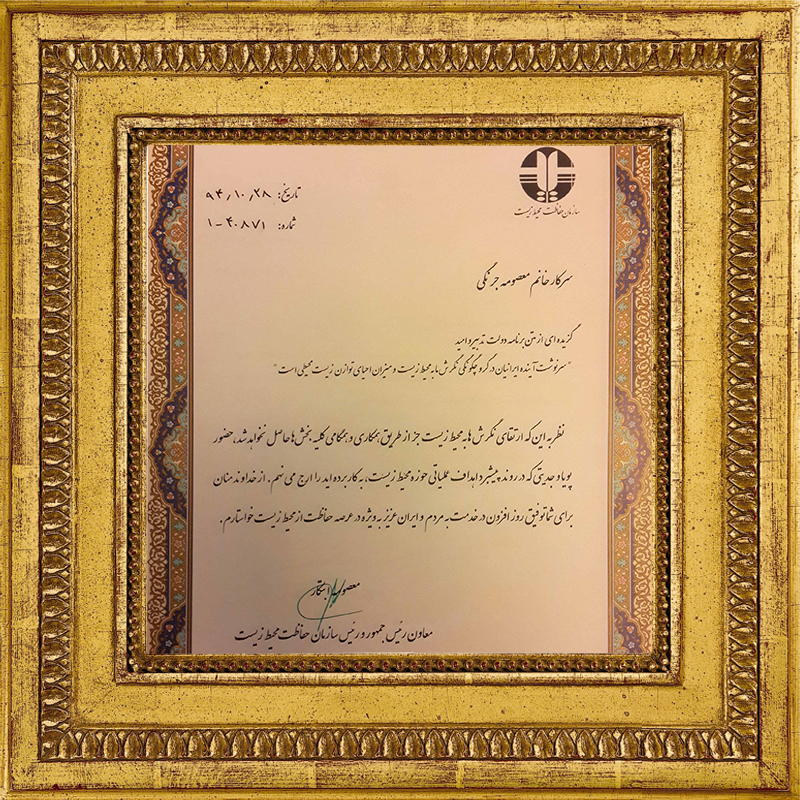 سازمان حفاظت محیط زیست
تاریخ: ۹۴٫۱۰٫۲۸
شماره: ۴۰۸۷۱-۱
سرکار خانم معصومه جرنگی
گزیده ای از متن برنامه دولت تدبیر و امید
"سرنوشت آینده ایرانیان در گرو چگونگی نگرش ما به محیط زیست و میزان احیای توازن زیست محیطی است"
نظر به این که ارتقای نگرش ها به محیط زیست جز از طریق همکاری و همگامی کلیه بخش ها حاصل نخواهد شد، حضور
پویا و جدیتی که در روند پیشبرد اهداف عملیاتی حوزه محیط زیست، به کار برده اید را ارج می نهم. از خداوند منان
برای شما توفیق روز افزون در خدمت به مردم و ایران عزیز به ویژه در عرصه حفاظت از محیط زیست خواستارم.
معصومه ابتکار
معاون رئیس جمهور و رئیس سازمان حفاظت محیط زیست